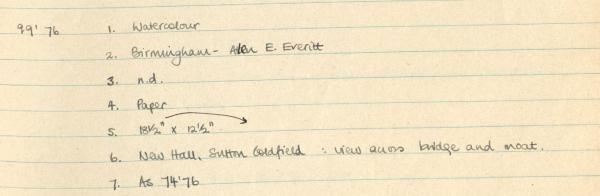 99' 76 1. Watercolour
2. Birmingham - Allen E. Everitt
3. n.d.
4. Paper
5. 18½" x 12½"
6. New Hall, Sutton Coldfield : view across bridge and moat.
7. As 74'76